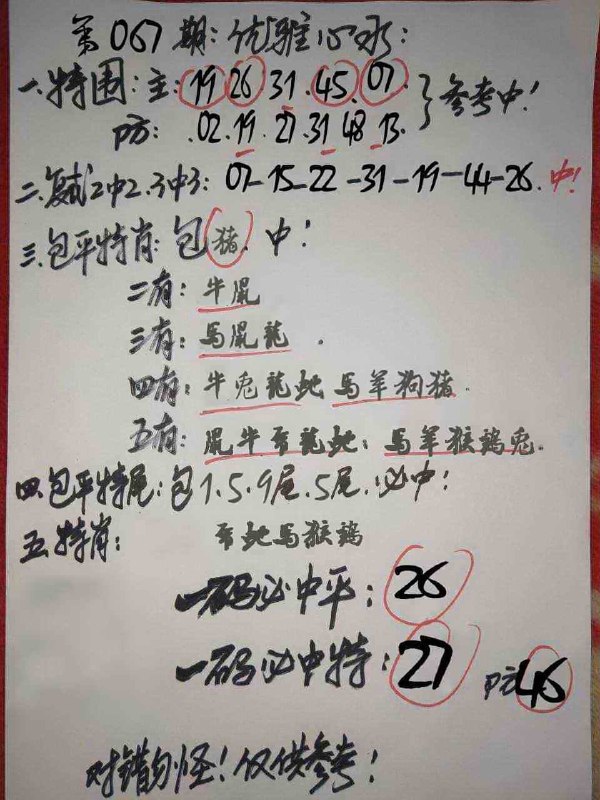 第067期:优雅心水:
一.特围:主:19 26 31 45.07 参考中!
防:.02.19.27.31 48 13.
二.复试2中2.3中3:07-15-22-31-19-44-26.中!
三.包平特肖:包猪.中!
二有:牛鼠
三有:马鼠龍.
四有:牛兔龍虵 马羊狗猪.
五有:鼠牛龍虵:马羊猴鷄兔.
四.包平特尾:包1.5.9尾.5尾.必中!
五.特肖:
虵马猴鷄
一码必中平:26
一码必中特:27 防46
对错勿怪!仅供参考!